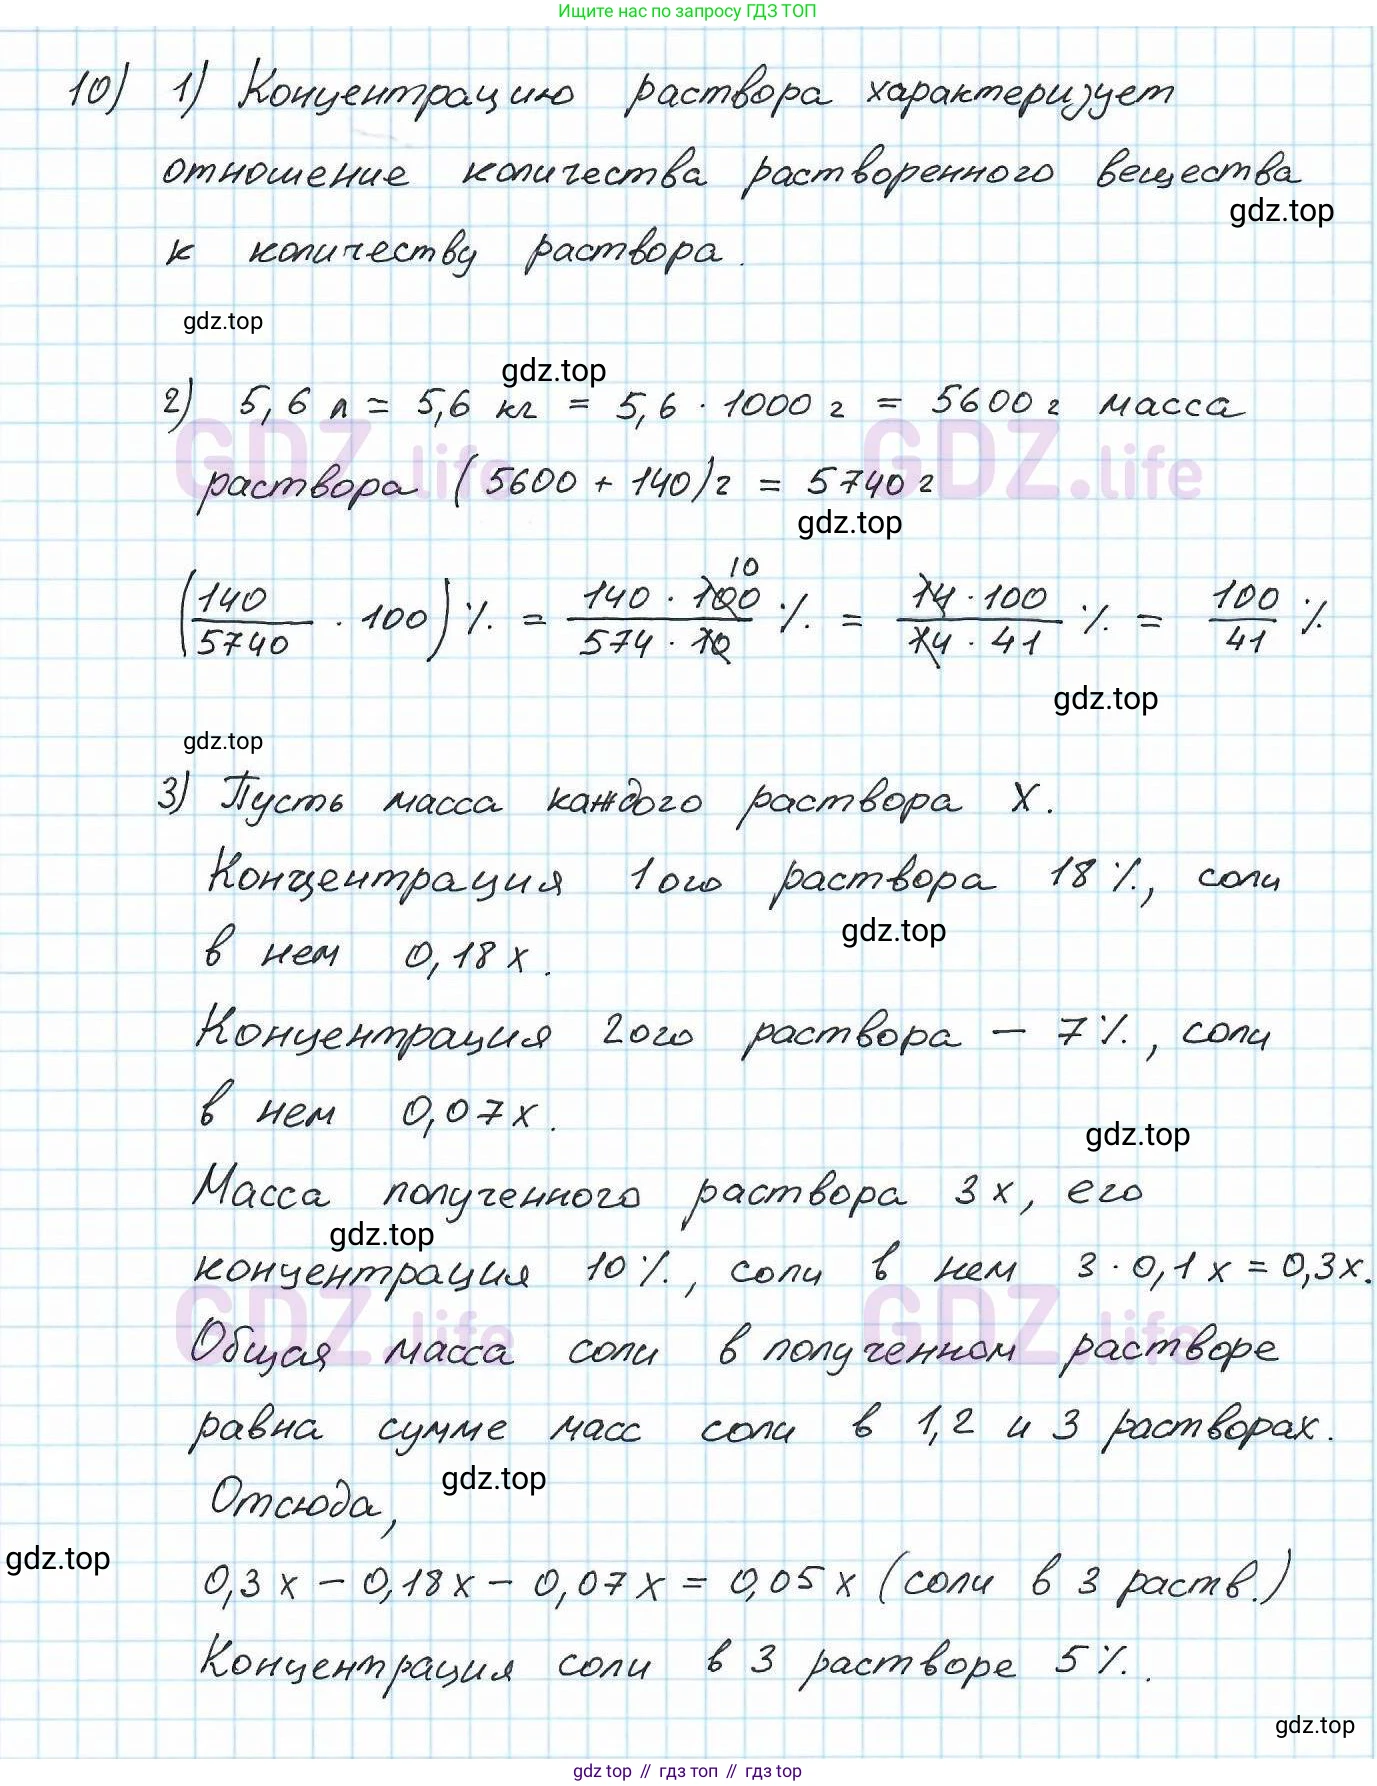 Ищите нас по запросу ГДЗ ТОП
10) 1) Концентрацию раствора характеризует
отношение количества растворенного вещества
gdz.top
к количеству раствора.
gdz.top
gdz.top
2) 5,6 л = 5,6 кг = 5,6 · 1000 г = 5600 г масса
GDZ.life GDZ.life
раствора (5600 + 140) г = 5740 г
gdz.top
(140/5740 · 100) % = 140 · 100 10/574 · 10 % = 14 · 100/14 · 41 % = 100/41 %
gdz.top
gdz.top
3) Пусть масса каждого раствора x.
Концентрация 1ого раствора 18 %, соли
gdz.top
в нем 0,18 x.
Концентрация 2ого раствора – 7 %, соли
в нем 0,07 x.
gdz.top
Масса полученного раствора 3 x, его
gdz.top
концентрация 10 %, соли в нем 3 · 0,1 x = 0,3 x.
GDZ.life GDZ.life
Общая масса соли в полученном растворе
равна сумме масс соли в 1,2 и 3 растворах.
gdz.top
Отсюда,
gdz.top
0,3 x – 0,18 x – 0,07 x = 0,05 x (соли в 3 раств.)
Концентрация соли в 3 растворе 5 %.
gdz.top
gdz top // гдз топ // гдз top